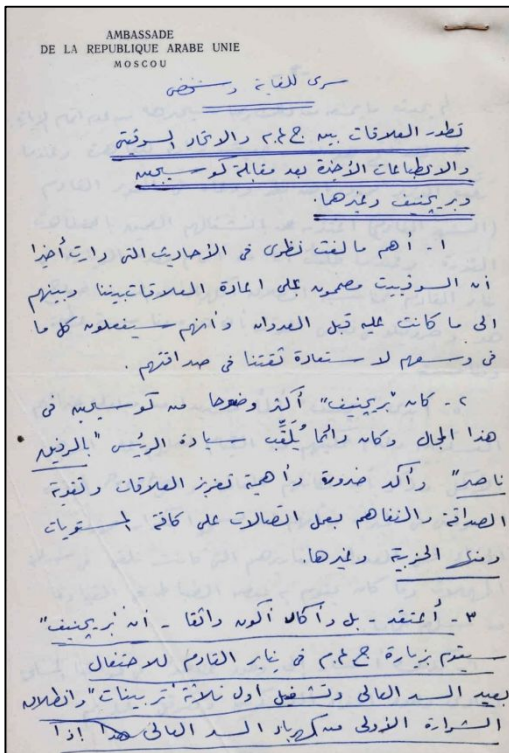 AMBASSADE
DE LA REPUBLIQUE ARABE UNIE
MOSCOU
سرى للغاية وشخصى
تطور العلاقات بين ج.ع.م والاتحاد السوفيتى
والانطباعات الأخيرة بعد مقابلة كوسيجين
وبريجنيف وغيرهما.
١ - أهم ما لفت نظرى فى الأحاديث التى دارت أخيرا
أن السوفييت مصممون على اعادة العلاقات بيننا وبينهم
الى ما كانت عليه قبل العدوان وأنهم سيفعلون كل ما
فى وسعهم لاستعادة ثقتنا فى صداقتهم.
٢ - كان "بريجنيف" أكثر وضوحا من كوسيجين فى
هذا المجال وكان دائما يُلقِّب سيادة الرئيس "بالرفيق
ناصر" وأكد ضرورة وأهمية تعزيز العلاقات وتقوية
الصداقة والتفاهم بعمل اتصالات على كافة المستويات
ومنها الحزبية وغيرها.
٣ - أعتقد - بل وأكاد أكون واثقا - أن "بريجنيف"
سيقوم بزيارة ج.ع.م فى يناير القادم للاحتفال
بعيد السد العالى وتشغيل أول ثلاثة تربينات "وانطلاق
الشرارة الأولى من كهرباء السد العالى" هذا إذا